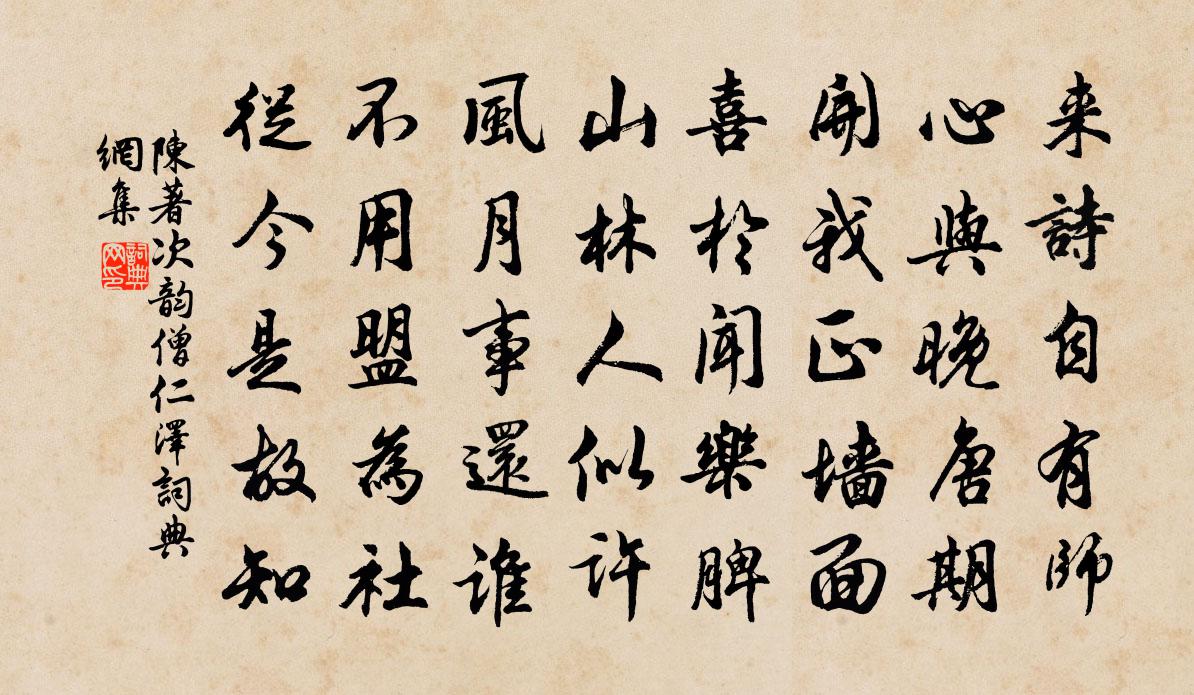 来詩自有師
心與晚唐期
開我正墻面
喜於聞樂脾
山林人似許
風月事還誰
不用盟為社
從今是故知
陳著次韵僧仁澤詞典
網集
詞典
网印